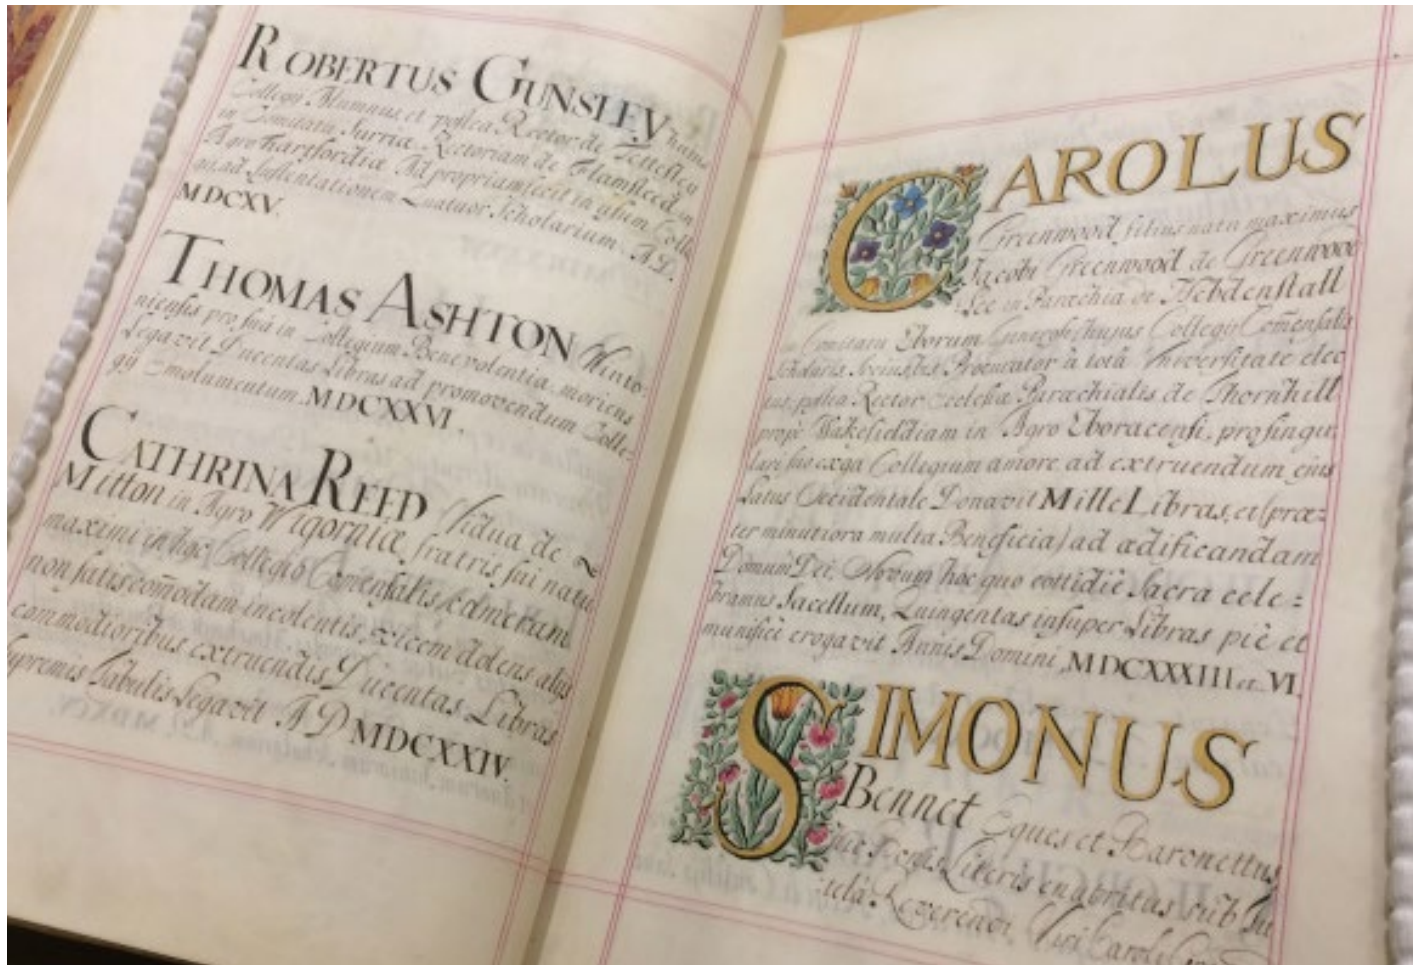 ROBERTUS GUNSLEY huius
Collegij Alumnus, et postea Rector de Tettesley
in Comitatu Surriæ Rectoriam de Flamsteed in
Agro Hartfordiæ Ad propriam fecit in usum Colle
gij, ad sustentationem Quatuor Scholarium. A.D.
MDCXV.
THOMAS ASHTON Winto-
niensis pro sua in Collegium Benevolentia, moriens
Legavit Ducentas Libras ad promovendum Colle-
gij Emolumentum. MDCXXVI.
CATHRINA REED Vidua de
Mitton in Agro Wigorniæ, fratris sui natu
maximi in hoc Collegio Comensalis, cameram
non satis com̃odam incolentis, vicem dolens alijs
commodioribus extruendis Ducentas Libras
supremis Tabulis Legavit A.D MDCXXIV.
CAROLUS
Greenwood filius natu maximus
Jacobi Greenwood de Greenwood
Lee in Parachia de Hebdenstall
in Comitatu Eborum Generosi, hujus Collegij Com̃ensalis
Scholaris, Socius, bis Procurator à totâ Universitate elec
tus, postea Rector Ecclesiæ Parachialis de Thornhill
prope Wakefieldiam in Agro Eboracensi, pro singu
lari suo erga Collegium amore ad extruendum ejus
Latus Occidentale Donavit Mille Libras, et (præ=
ter minutiora multa Beneficia) ad ædificandam
Domum Dei, Novum hoc quo cottidiè Sacra cele=
bramus Sacellum, Quingentas insuper Libras piè et
munificè erogavit Annis Domini, MDCXXXIII et VI.
SIMONUS
Bennet Eques et Baronettus
hic Literis enutritus sub tu
telâ Reverendi Viri Caroli